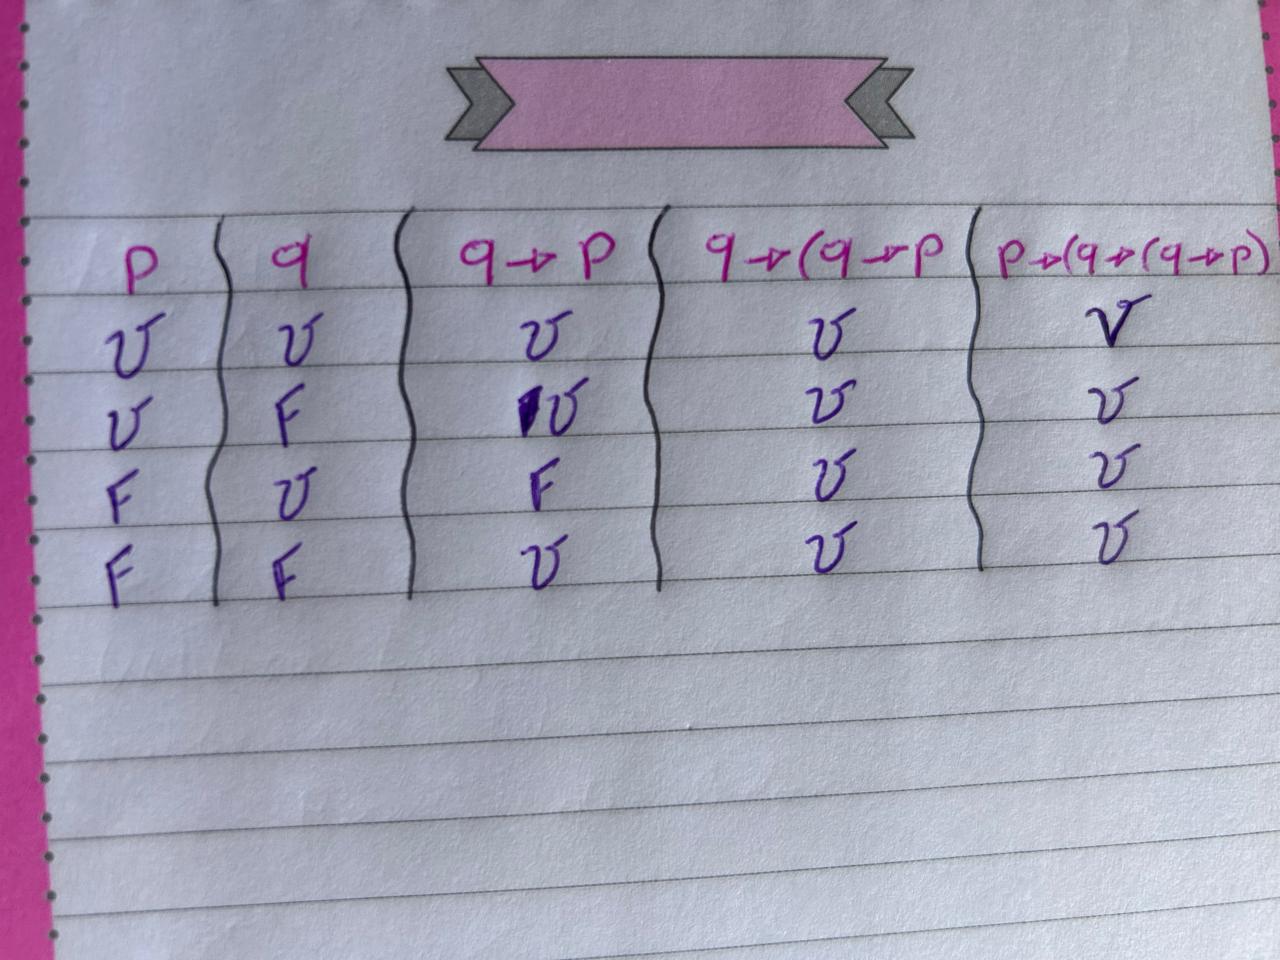 p q q → p q → (q → p p → (q → (q → p)
V V V V V
V F V V V
F V F V V
F F V V V